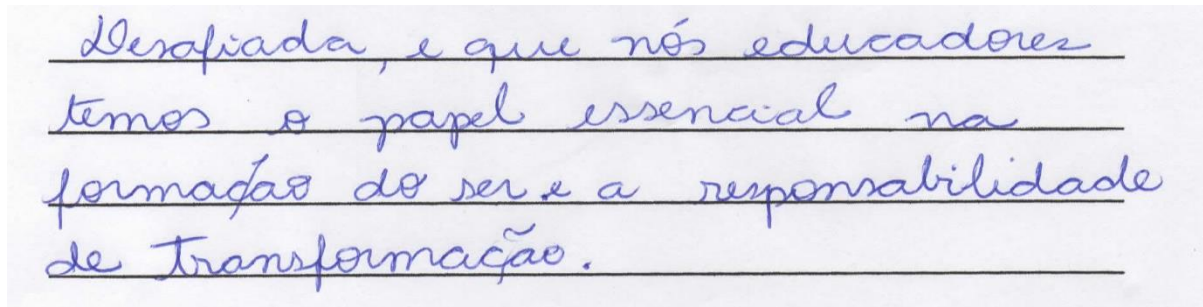 Desafiada, e que nós educadores
temos o papel essencial na
formação do ser e a responsabilidade
de transformação.